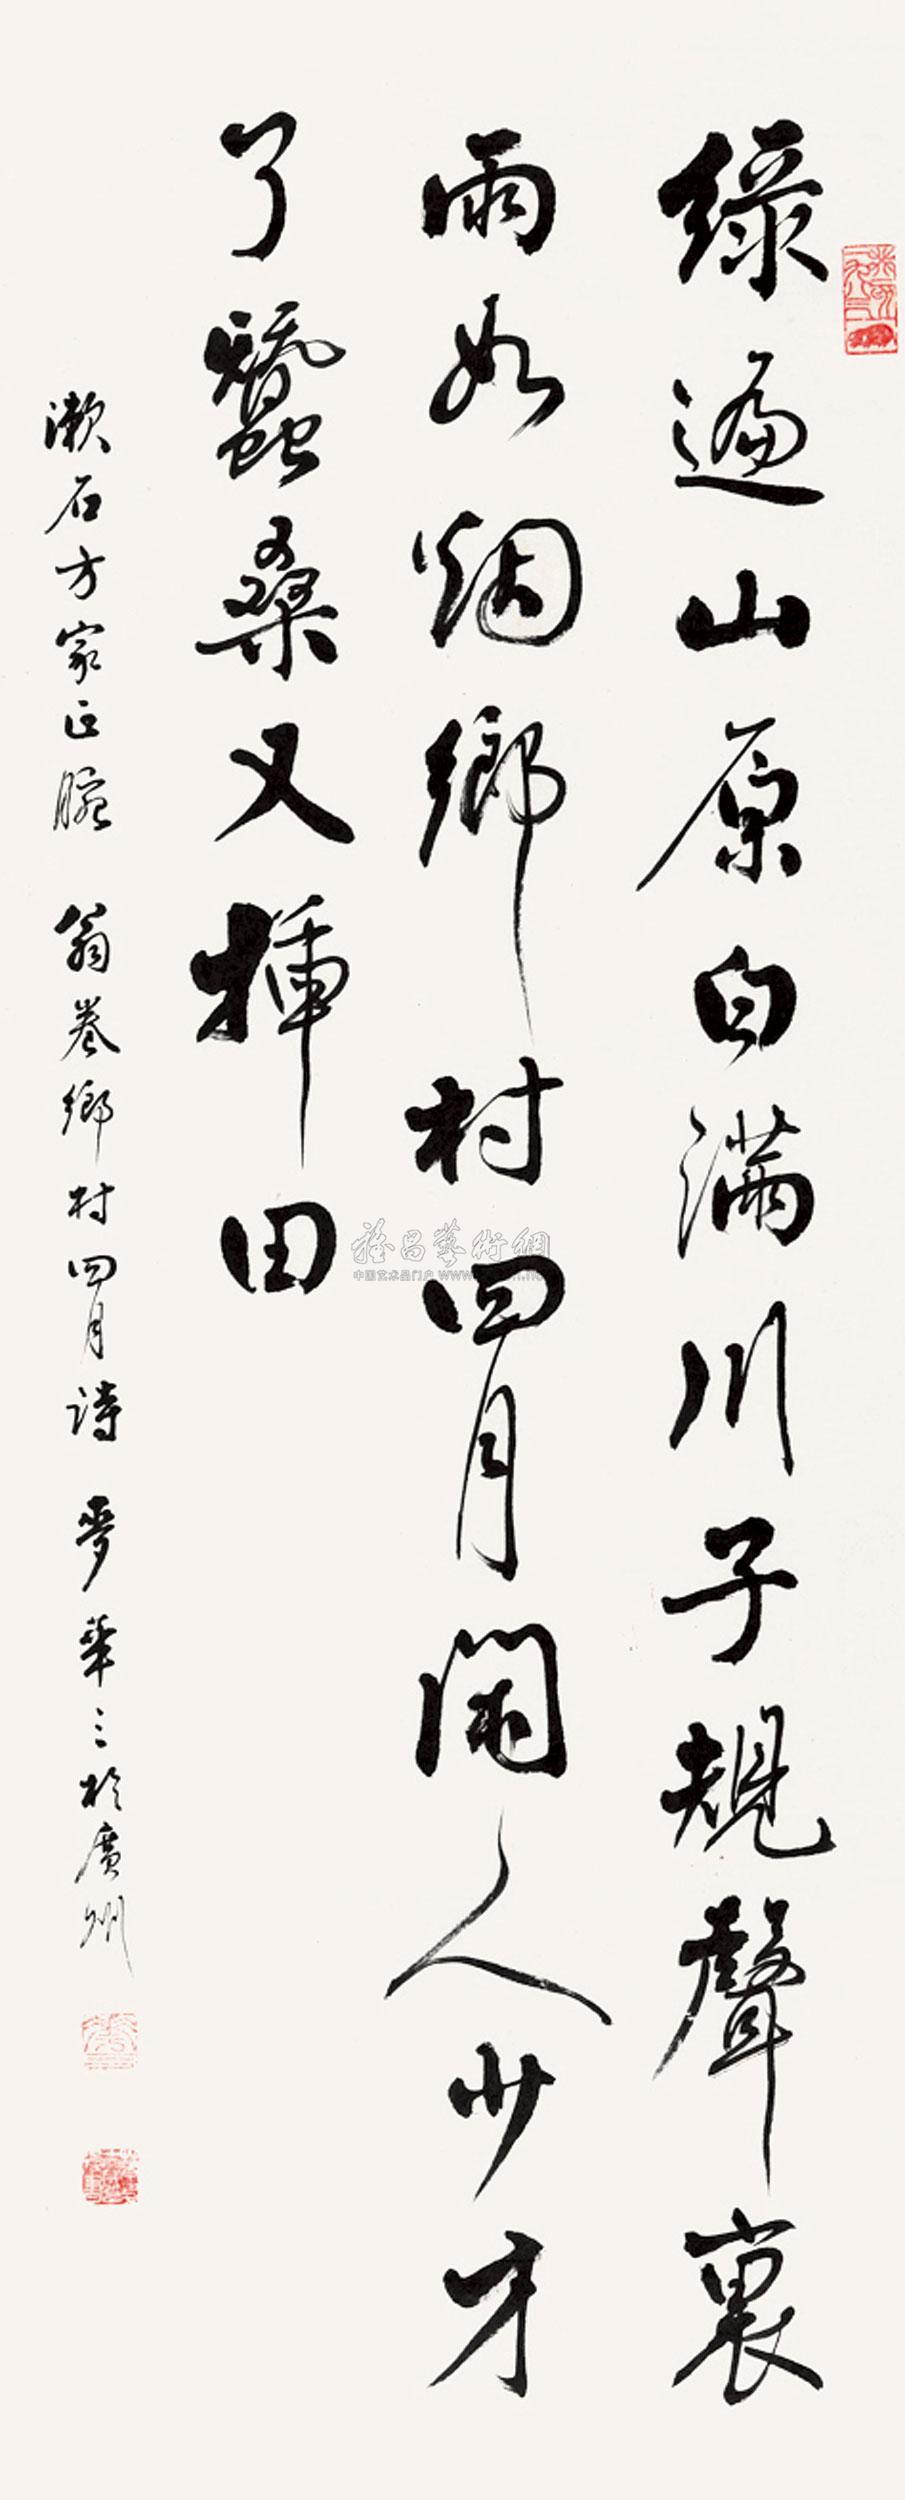 綠遍山原白滿川子規聲裏
雨如烟鄉村四月閒人少才
了蠶桑又插田
漱石方家正腕 翁卷鄉村四月詩 麥華三於廣州
雅昌藝術網
中国艺术品门户